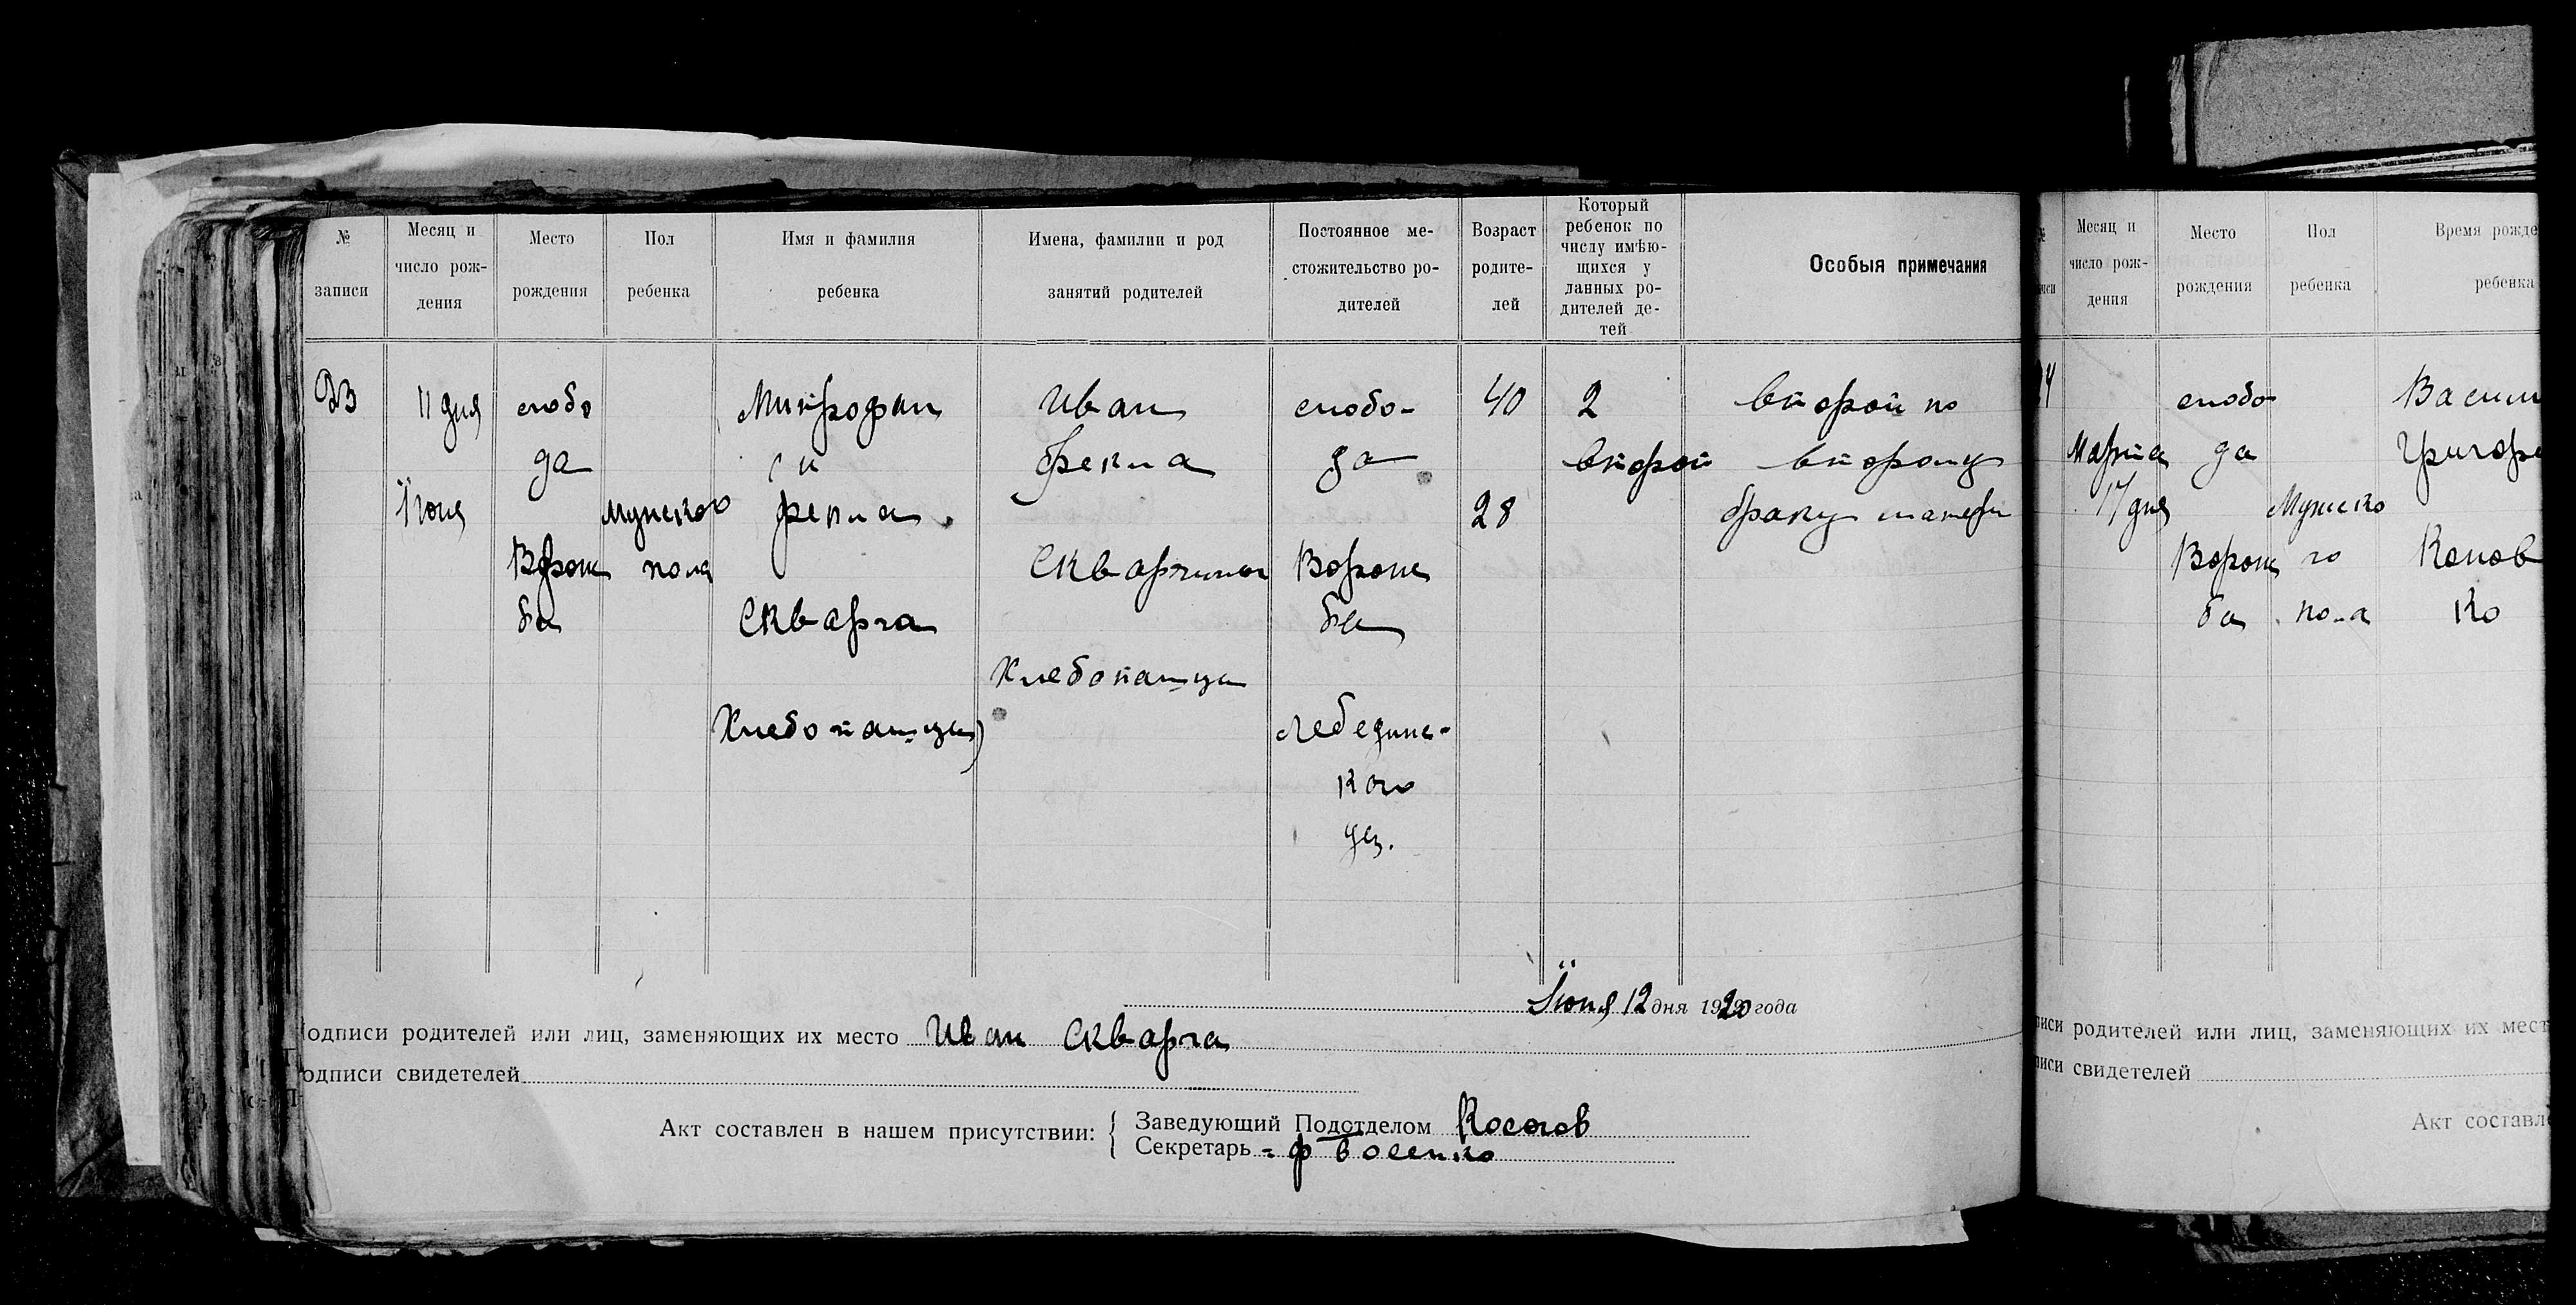 № записи
Месяц и число рождения
Место рождения
Пол ребенка
Имя и фамилия ребенка
Имена, фамилии и род занятий родителей
Постоянное местожительство родителей
Возраст родителей
Который ребенок по числу имѣющихся у данных родителей детей
Особыя примечания
11 дня
Iюня
слобо
да
Ворож
ба
мужского
пола
Митрофан
Скварча
Хлебопашцы)
Иван
Фекла
Хлебопашцы
слобо-
да
Ворож
ба
Лебединс-
кого
уез.
40
28
2
второй
второй по
второму
браку матери
Iюня 12 дня 1920 года
одписи родителей или лиц, заменяющих их место Иван Скварча
одписи свидетелей
Акт составлен в нашем присутствии:
Заведующий Подотделом
Секретарь
Месяц и число рож-дения
Место рождения
Пол ребенка
Время рожде
ребенка
4
Марта
17 дня
слобо
да
Ворож
ба
Мужско
го
пола
Васили
Григоре
Конов
ко
иси родителей или лиц, заменяющих их мест
иси свидетелей
Акт составле